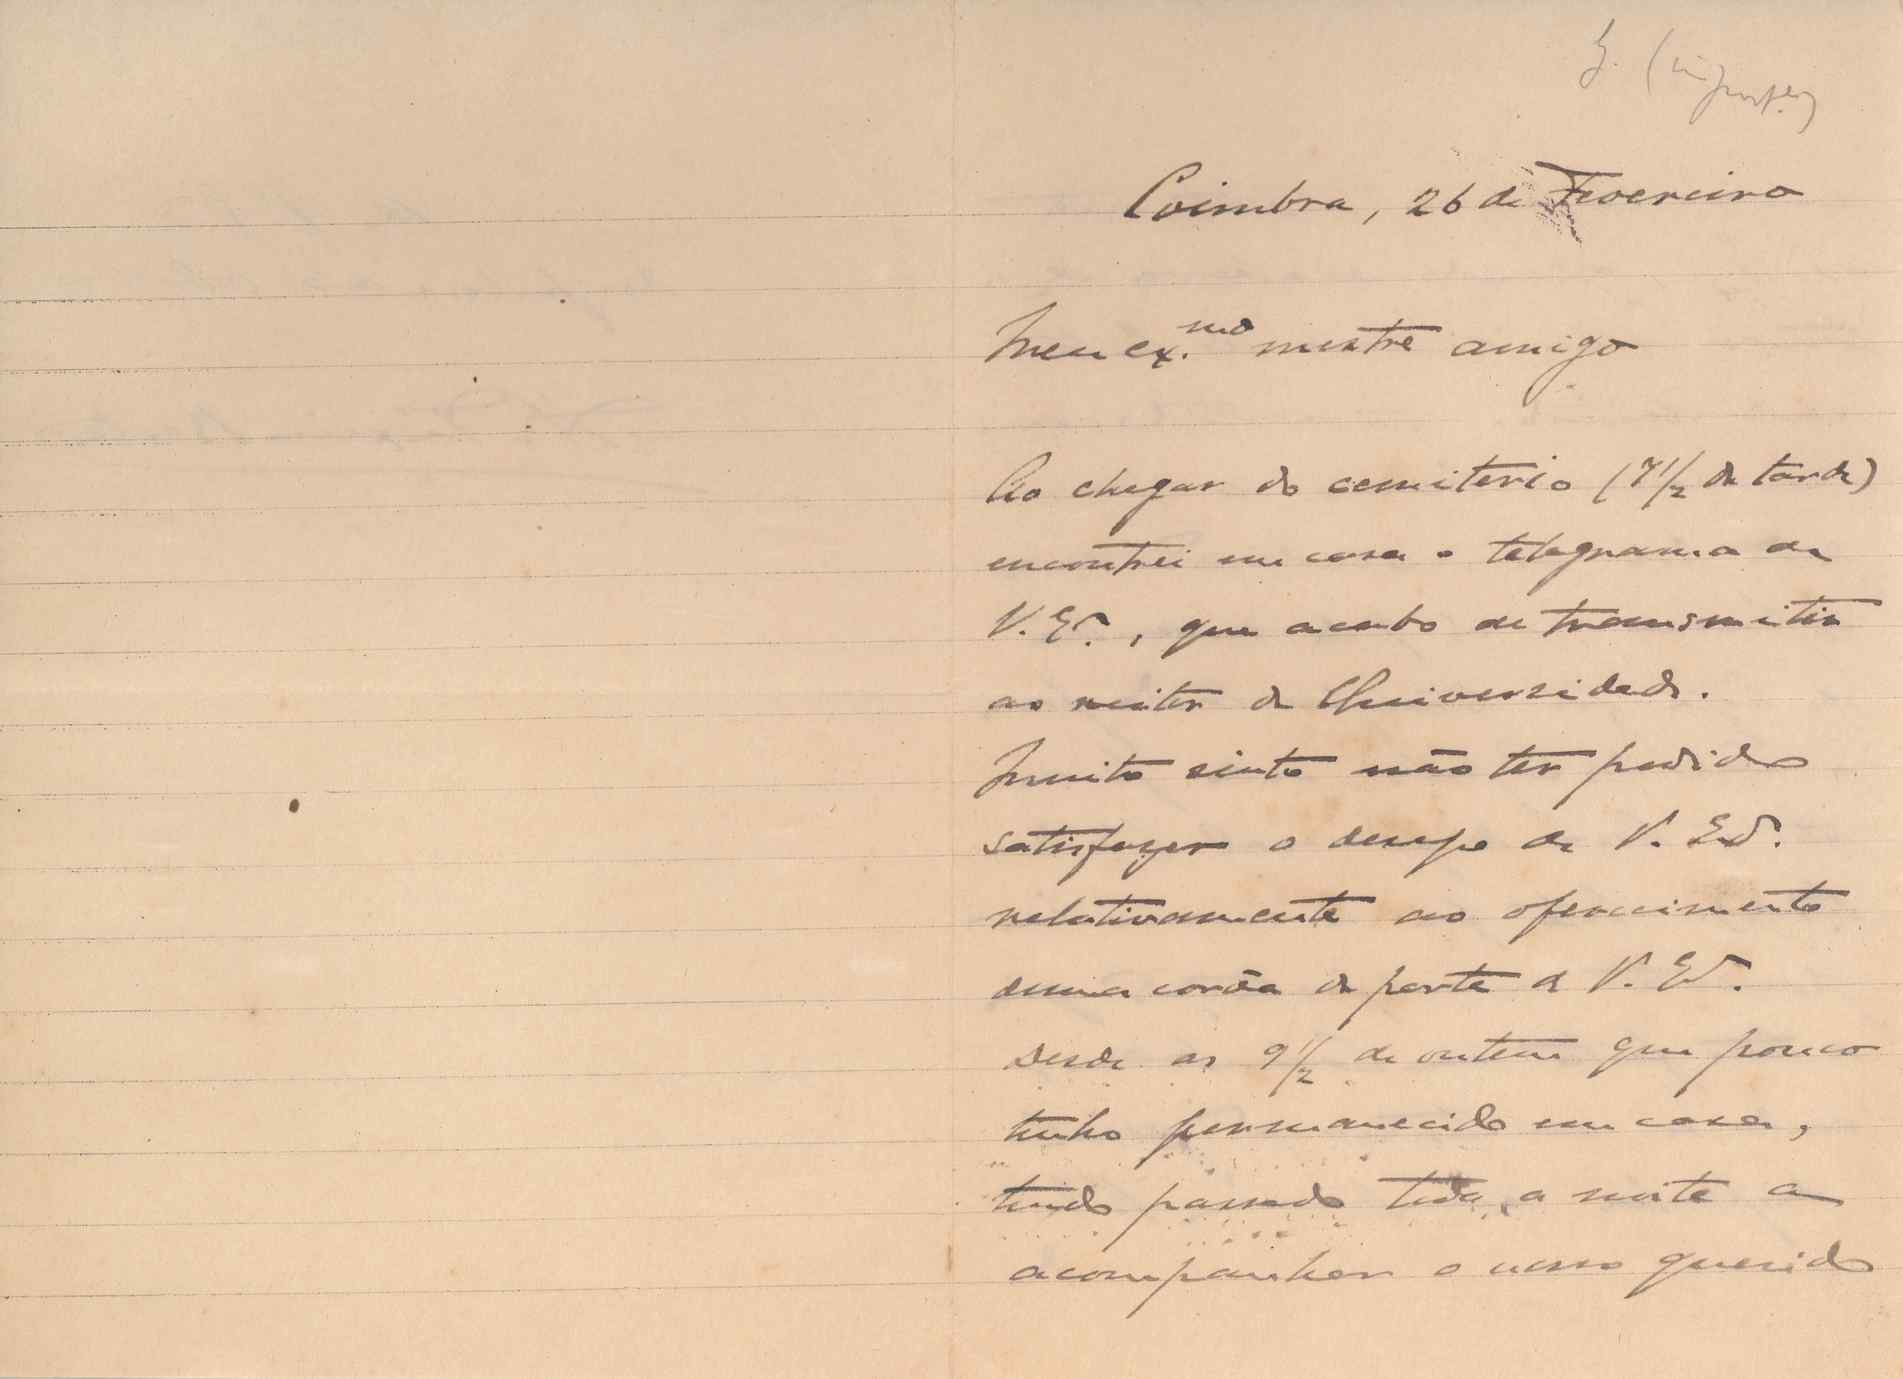 Coimbra, 26 de Fevereiro
Meu ex.mo mestre amigo
Ao chegar do cemiterio (7 1/2 da tarde)
encontrei em casa o telegrama de
V. Ex.ª, que acabo de transmitir
ao reitor da Universidade.
Muito sinto não ter podido
satisfazer o desejo de V. Ex.ª
relativamente ao oferecimento
duma corôa da parte de V. Ex.ª
Desde as 9 1/2 de ontem que pouco
tenho permanecido em casa,
tendo passado toda a noite a
acompanhar o nosso querido